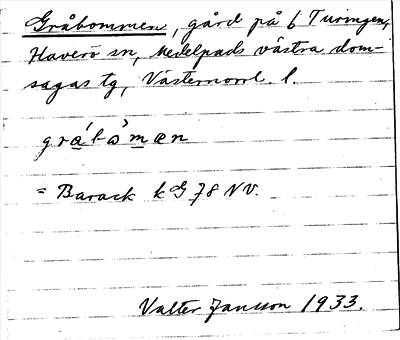 Gråbommen, gård på b Turingen,
Haverö sn, Medelpads västra dom-
sagas tg, Västernorrl. l.
gra̲´bɷ`m̲æn
= Barack kG 78 NV.
Valter Jansson 1933.